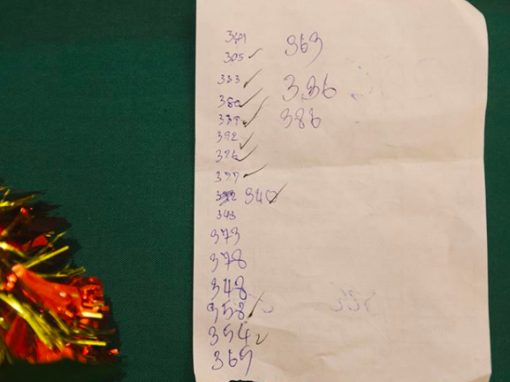 305 ✓ 369
333 ✓
380 ✓ 336
339 ✓ 386
392 ✓
326 ✓
337 ✓
340 ✓
343
373
378
348
358 ✓
354 ✓
369